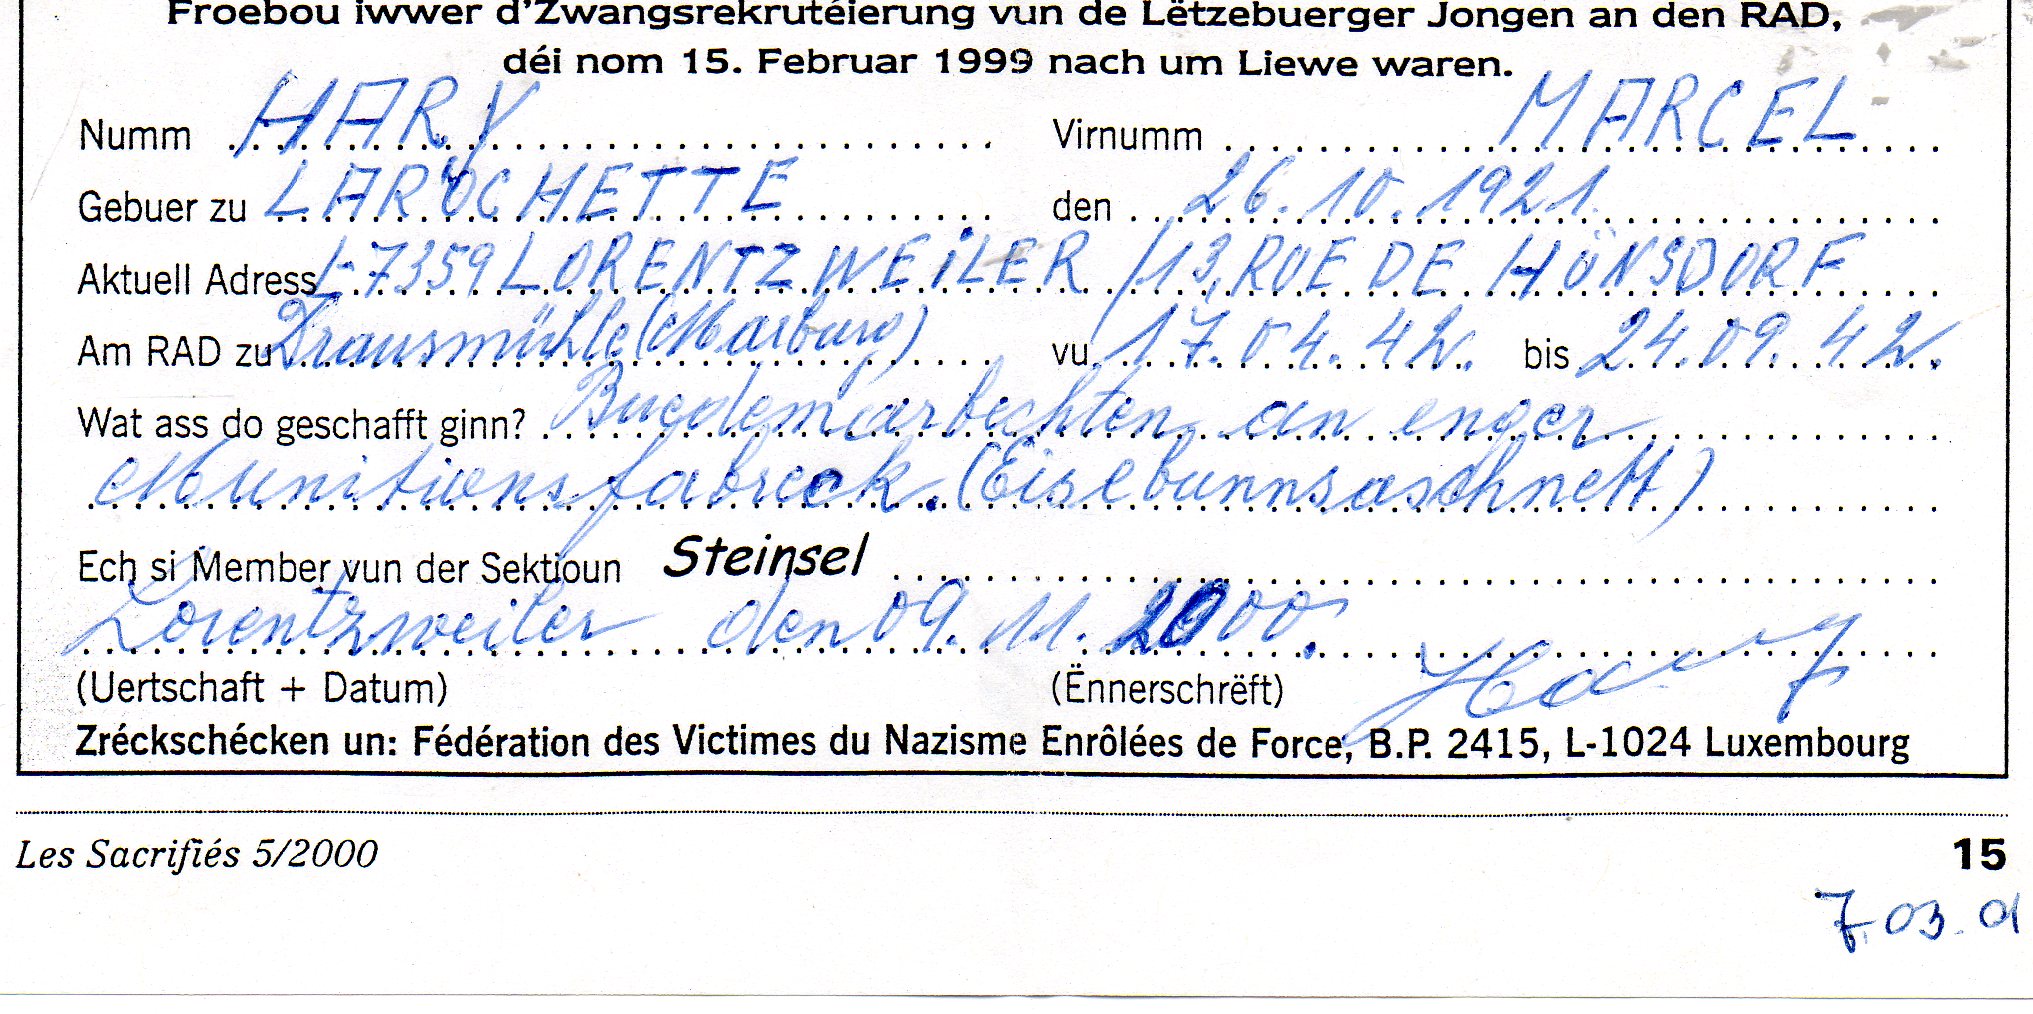 Froebou iwwer d'Zwangsrekrutéierung vun de Lëtzebuerger Jongen an den RAD,
déi nom 15. Februar 1999 nach um Liewe waren.
Numm HARY Virnumm MARCEL
Gebuer zu LAROCHETTE den 26.10.1921.
Aktuell Adress L-7359 LORENTZWEILER / 13, RUE DE HÜNSDORF
Am RAD zu Drausmühle (Marburg) vu 17.04.42. bis 24.09.42.
Wat ass do geschafft ginn? Buedemarbechten an enger
Munitiounsfabreck. (Eisebunnsaschnett)
Ech si Member vun der Sektioun Steinsel
Lorentzweiler den 09.11.2000.
(Uertschaft + Datum) (Ënnerschrëft) Hary
Zréckschécken un: Fédération des Victimes du Nazisme Enrôlées de Force, B.P. 2415, L-1024 Luxembourg
Les Sacrifiés 5/2000 15
7.03.01